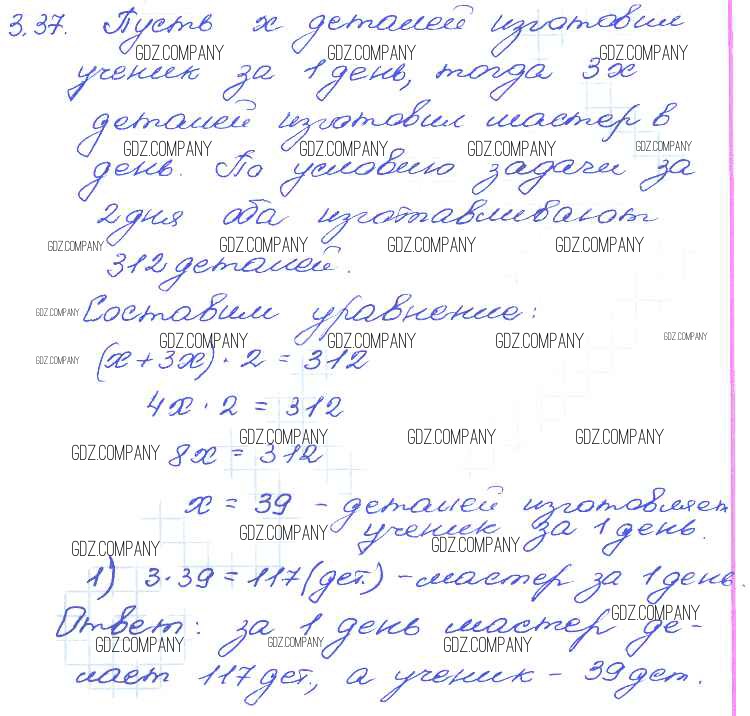 3.37. Пусть x деталей изготовил
GDZ.COMPANY GDZ.COMPANY GDZ.COMPANY
ученик за 1 день, тогда 3x
деталей изготовил мастер в
GDZ.COMPANY GDZ.COMPANY GDZ.COMPANY GDZ.COMPANY
день. По условию задачи за
2 дня оба изготавливают
GDZ.COMPANY GDZ.COMPANY GDZ.COMPANY GDZ.COMPANY
312 деталей.
GDZ.COMPANY Составим уравнение:
GDZ.COMPANY GDZ.COMPANY GDZ.COMPANY GDZ.COMPANY
GDZ.COMPANY (x + 3x) · 2 = 312
4x · 2 = 312
GDZ.COMPANY GDZ.COMPANY GDZ.COMPANY
GDZ.COMPANY 8x = 312
x = 39 - деталей изготовляет
GDZ.COMPANY ученик за 1 день.
GDZ.COMPANY GDZ.COMPANY
1) 3 · 39 = 117 (дет.) - мастер за 1 день.
GDZ.COMPANY
Ответ: за 1 день мастер де-
GDZ.COMPANY GDZ.COMPANY GDZ.COMPANY
лает 117 дет., а ученик - 39 дет.